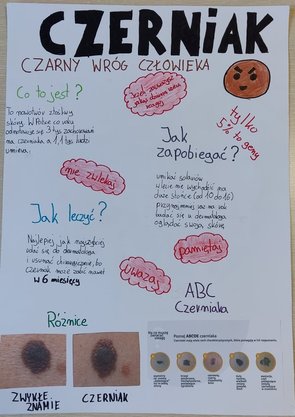 CZERNIAK
CZARNY WRÓG CZŁOWIEKA
Co to jest?
To nowotwór złośliwy
skóry. W Polsce co roku
odnotowuje się 3 tys zachorowań
na czerniaka a 1,1 tys ludzi
umiera.
tylko
5% to geny
nie zwlekaj
Jak
zapobiegać?
unikać solariów
w lecie nie wychodzić na
duże słońce (od 10 do 16)
przynajmniej raz na rok
badać się u dermatologa
oglądać swoją skórę
Jak leczyć?
Najlepiej jak najszybciej
udać się do dermatologa
i usunąć chirurgicznie, bo
czerniak może zabić nawet
w 6 miesięcy
pamiętaj
Uważaj
ABC
Czerniaka
Różnice
ZWYKŁE
ZNAMIE
CZERNIAK
Poznaj ABCDE czerniaka